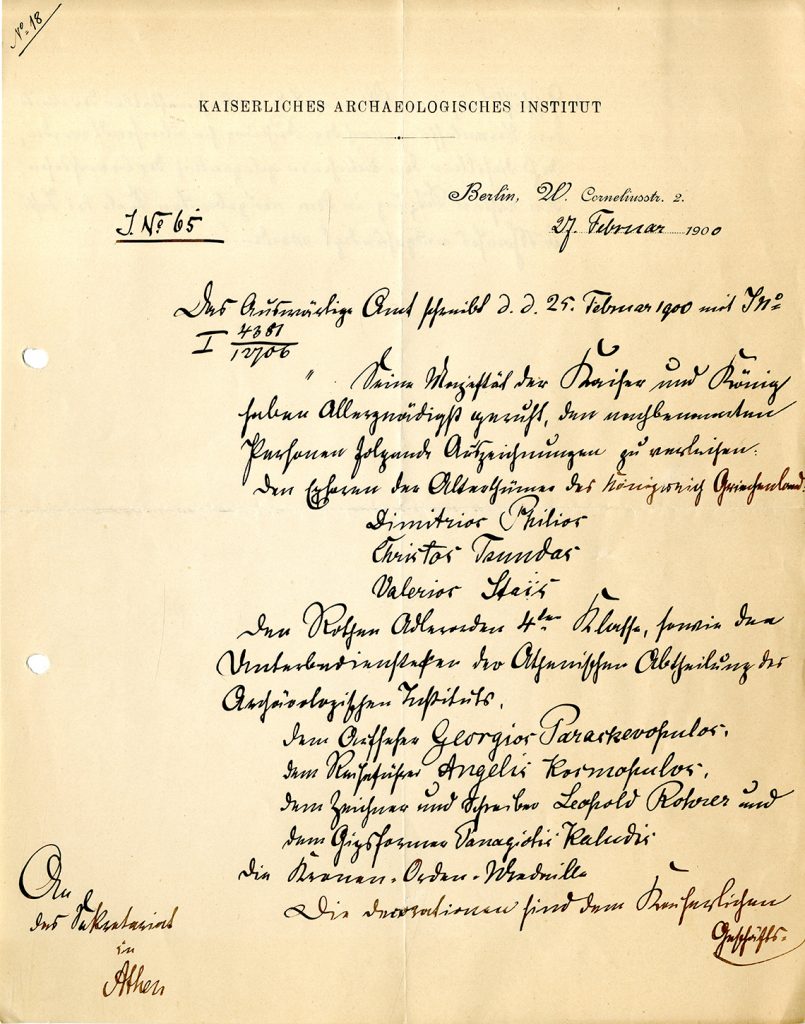 No 18
KAISERLICHES ARCHAEOLOGISCHES INSTITUT
Berlin, W. Corneliusstr. 2.
J. No 65
27. Februar 1900
Das Auswärtige Amt schreibt d. d. 25. Februar 1900 mit JNo
I 4381/12706
" Seine Majestät der Kaiser und König
haben Allergnädigst geruht, den nachbenannten
Personen folgende Auszeichnungen zu verleihen:
den Ephoren der Alterthümer des Königreich Griechenland:
Dimitrios Philios
Christos Tsundas
Valerios Staïs
den Rothen Adlerorden 4ter Klasse, sowie den
Unterbediensteten der Athenischen Abtheilung des
Archäologischen Instituts,
dem Aufseher Georgios Paraskevopulos,
dem Reiseführer Angelis Kosmopulos,
dem Zeichner und Schreiber Leopold Rohrer und
dem Gipsformer Panagiotis Kaludis
die Kronen-Orden-Medaille
Die Decorationen sind dem Kaiserlichen
Geschäfts-
An
das Sekretariat
in
Athen